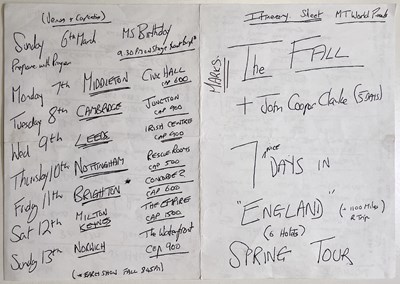 (Venue & Capacities)
Sunday 6th March MS Birthday
Prepare with Prayer
Monday 7th MIDDLETON Civic HALL
CAP 600
Tuesday 8th CAMBRIDGE JUNCTION
CAP 900
Wed 9th LEEDS IRISH CENTRE
CAP 900
Thursday 10th NOTTINGHAM RESCUE ROOMS
CAP 500
Friday 11th BRIGHTON * CONCORDE 2
CAP 600
Sat 12th MILTON KEYNES THE EMPIRE
CAP 1500
Sunday 13th NORWICH The Waterfront
CAP 900
(* EARLY SHOW FALL 8.45PM)
Itinerary Sheet MT World
MARKS.
The FALL
+ John Cooper Clarke (5 DAYS)
7 nice DAYS IN
"ENGLAND" (1100 Miles)
R Trip
(6 Hotels)
SPRING TOUR